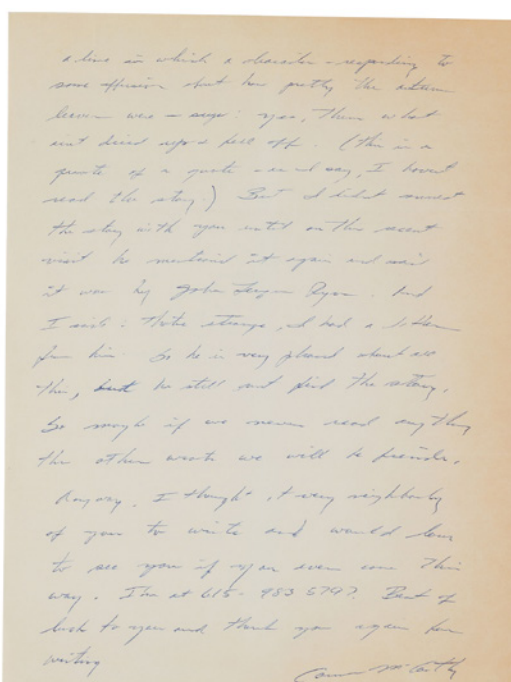 a line in which a character - responding to
some effusion about how pretty the autumn
leaves were - says: yes, them what
aint dried up & fell off. (this is a
quote of a quote - as I say, I havent
read the story.) But I didnt connect
the story with you until on this recent
visit he mentioned it again and said
it was by John Ryan. And
I said: thats strange, I had a letter
from him. So he is very pleased about all
this, but he still cant find the story.
So maybe if we never read anything
the other wrote we will be friends.
Anyway, I thought it very neighborly
of you to write and would love
to see you if you ever come this
way. Im at 615-983 Best of
luck to you and thank you again for
writing
Cormac McCarthy